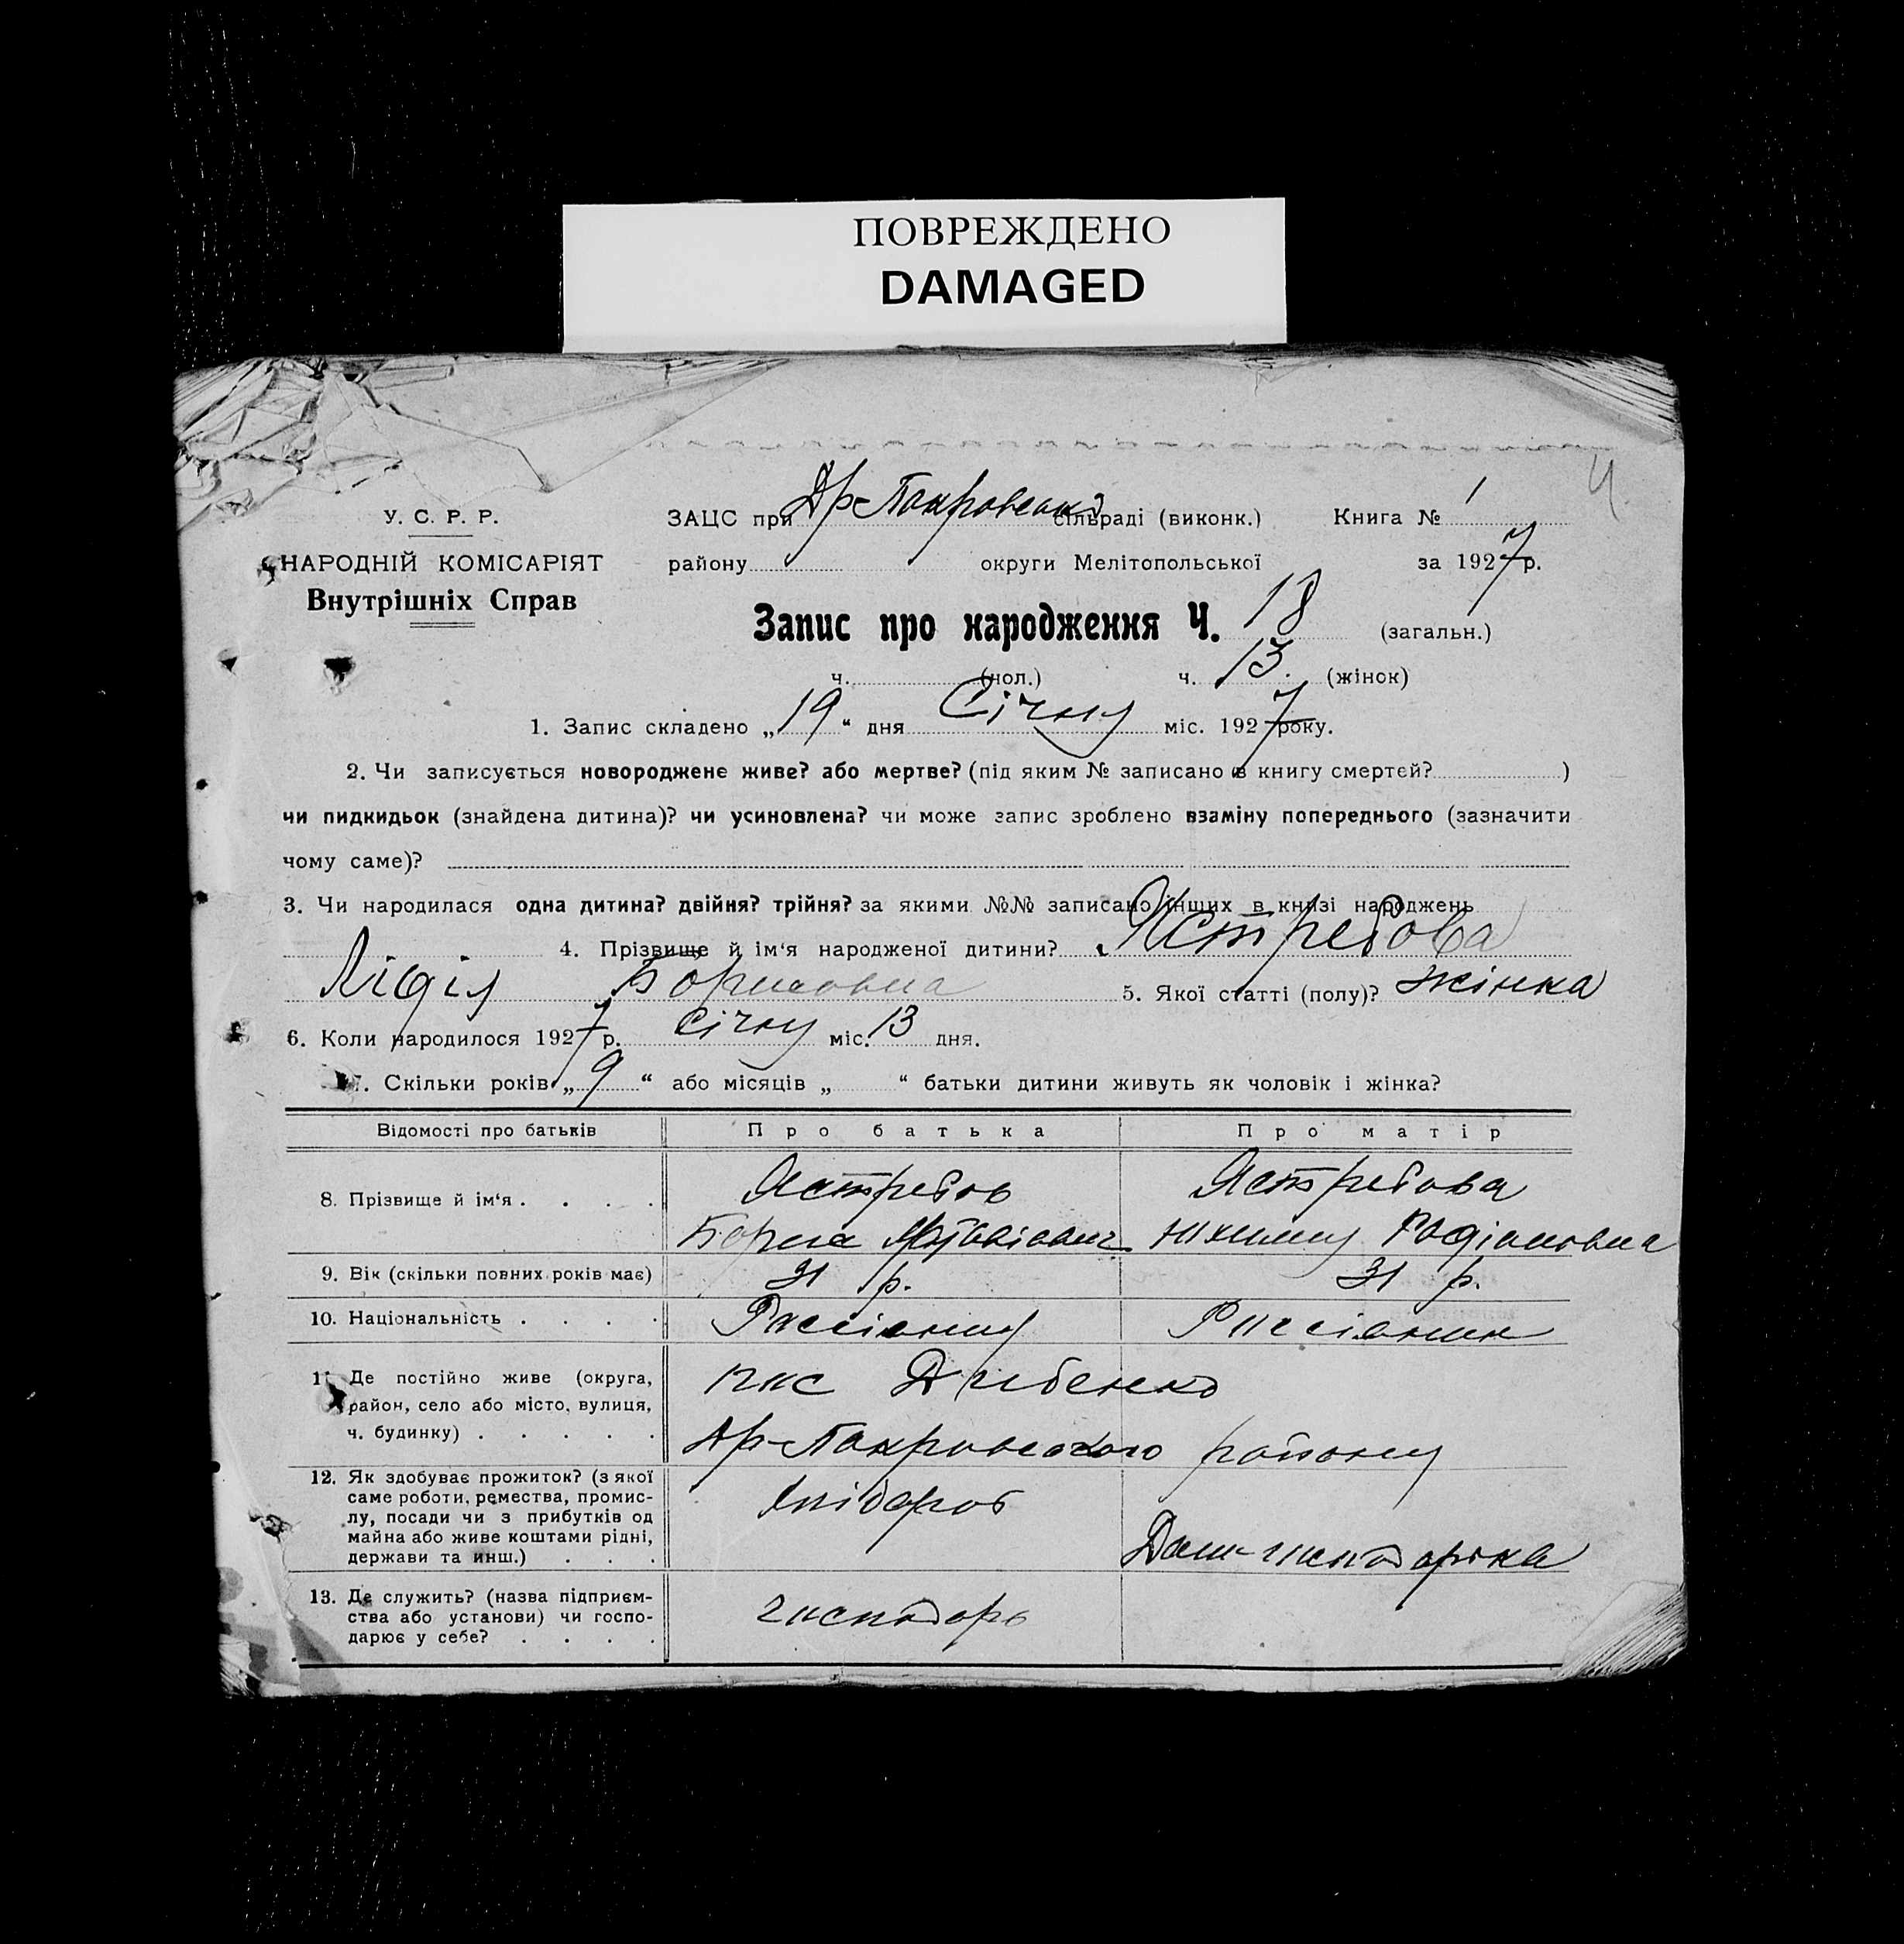 ПОВРЕЖДЕНО
DAMAGED
Ч
У. С. Р. Р.
НАРОДНІЙ КОМІСАРІЯТ
Внутрішніх Справ
ЗАЦС при Др-Покровськ. сільраді (виконк.) Книга № 1
району округи Мелітопольської за 1927 р.
Запис про народження Ч. 18 (загальн.)
ч. (чол.) ч. 13. (жінок)
1. Запис складено „19“ дня Січня міс. 1927 року.
2. Чи записується новороджене живе? або мертве? (під яким № записано в книгу смертей? )
чи пидкидьок (знайдена дитина)? чи усиновлена? чи може запис зроблено взаміну попереднього (зазначити
чому саме)?
3. Чи народилася одна дитина? двійня? трійня? за якими №№ записано інших в книзі народжень
4. Прізвище й ім‘я народженої дитини? Ястребова
Лідія Борисовна 5. Якої статті (полу)? жінка
6. Коли народилося 1927 р. Січня міс. 13 дня.
7. Скільки років „9“ або місяців „ “ батьки дитини живуть як чоловік і жінка?
Відомості про батьків Про батька Про матір
8. Прізвище й ім‘я . . . . Ястребов Ястребова
Борис Матвієвич Юхимия Родіоновна
9. Вік (скільки повних років має) 31 р. 31 р.
10. Національність . . . .
11. Де постійно живе (округа,
район, село або місто, вулиця,
ч. будинку) . . . . .
пос Дибенко
Др-Покровського району
12. Як здобуває прожиток? (з якої
саме роботи, ремества, промис-
лу, посади чи з прибутків од
майна або живе коштами рідні,
держави та инш.) . . .
Хлібороб
Дом-господарка
13. Де служить? (назва підприєм-
ства або установи) чи госпо-
дарює у себе? . . . .
господарь